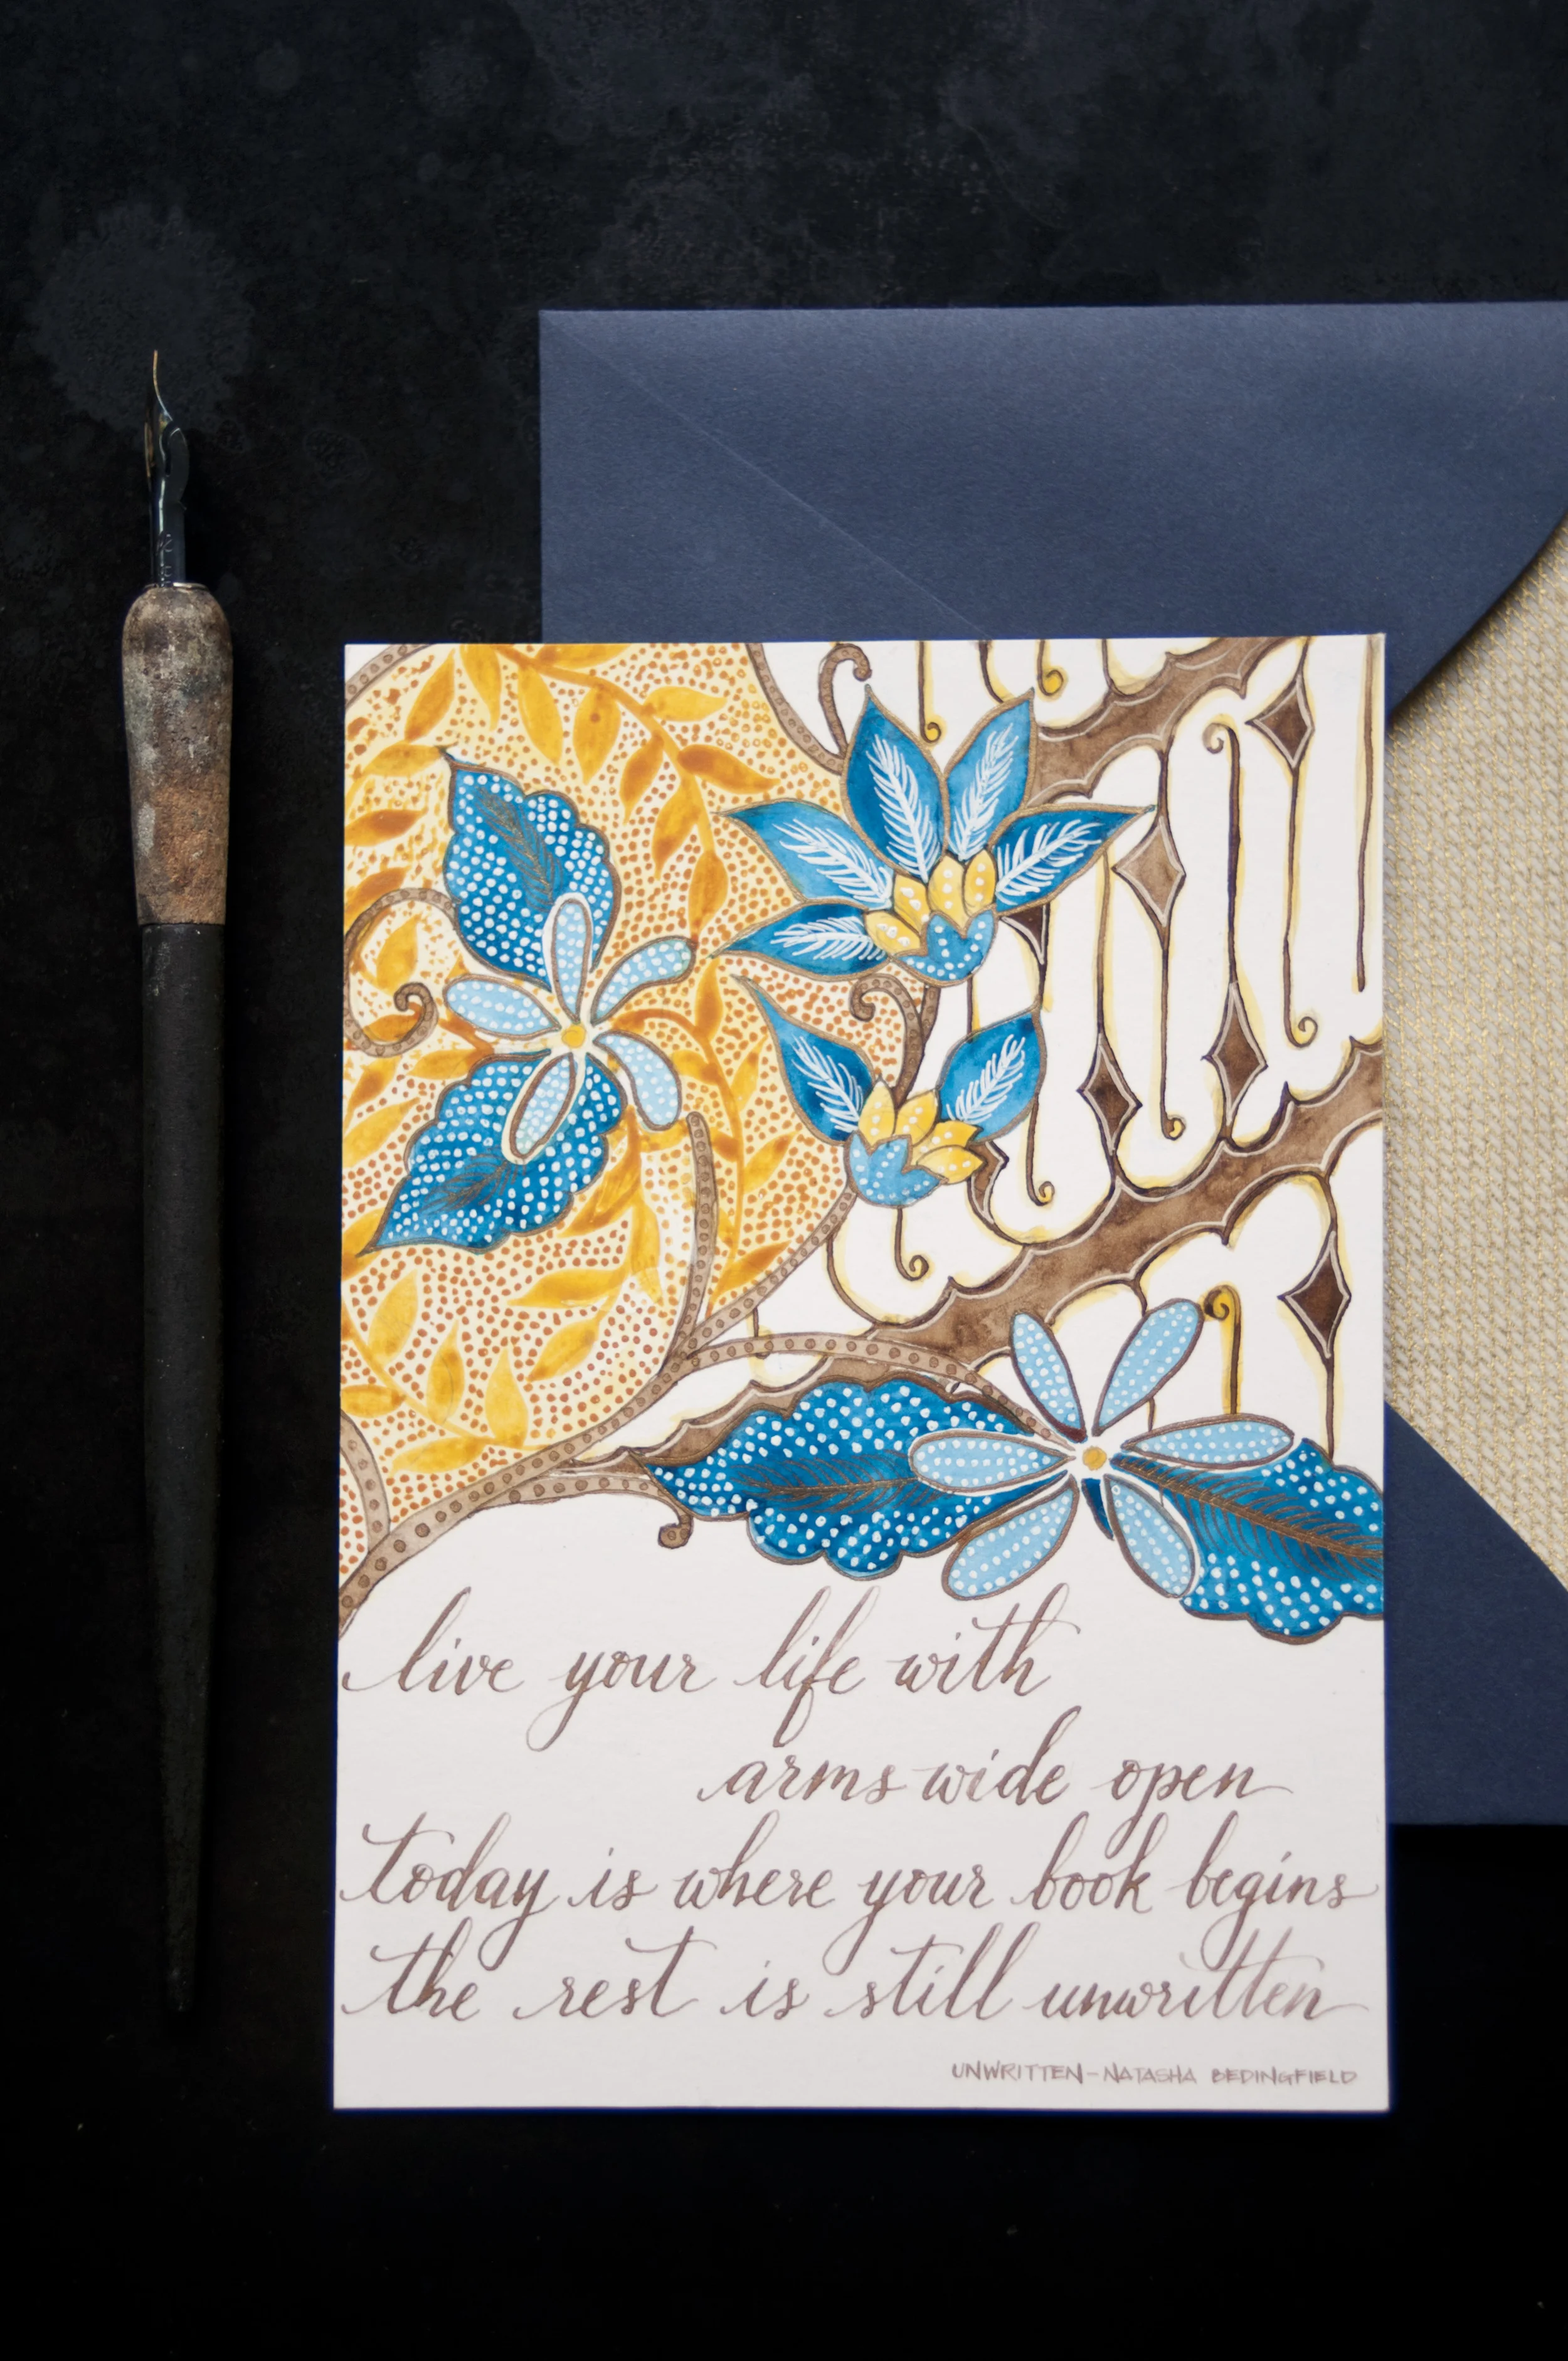 live your life with
arms wide open
today is where your book begins
the rest is still unwritten
UNWRITTEN-NATASHA BEDINGFIELD